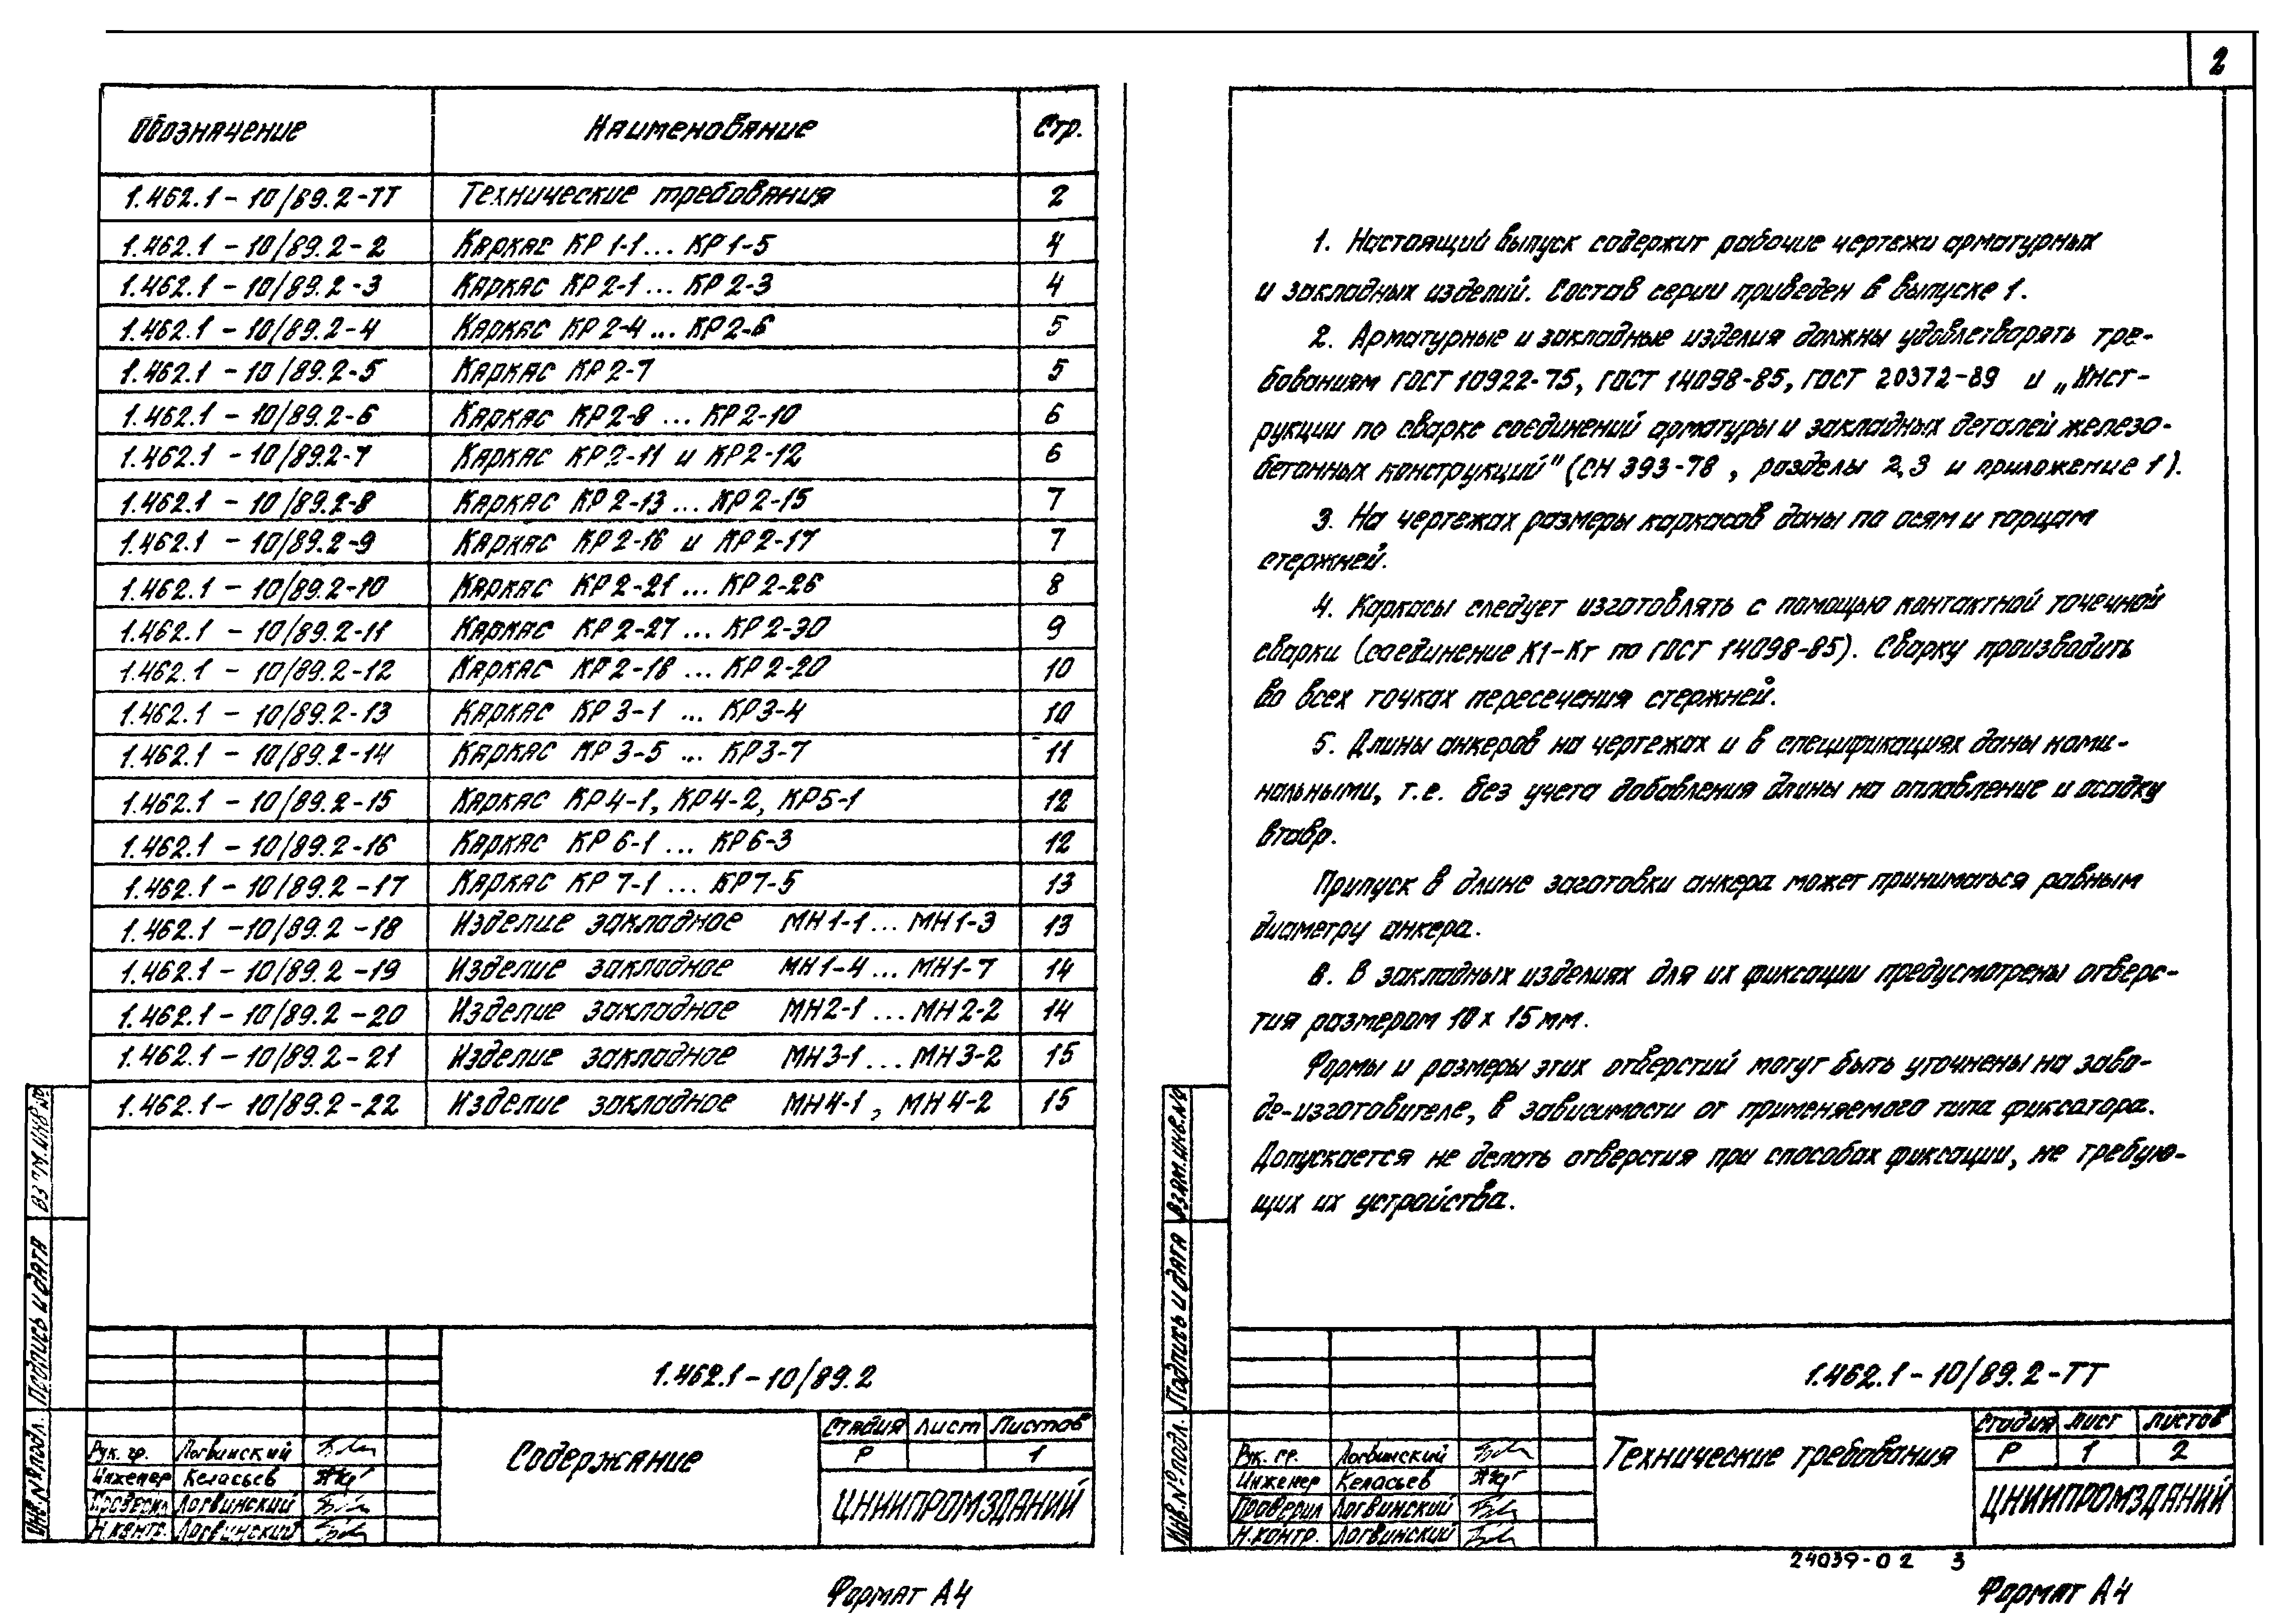 2
Обозначение Наименование Стр.
1.462.1-10/89.2-ТТ Технические требования 2
1.462.1-10/89.2-2 Каркас КР1-1...КР1-5 4
1.462.1-10/89.2-3 Каркас КР2-1...КР2-3 4
1.462.1-10/89.2-4 Каркас КР2-4...КР2-6 5
1.462.1-10/89.2-5 Каркас КР2-7 5
1.462.1-10/89.2-6 Каркас КР2-8...КР2-10 6
1.462.1-10/89.2-7 Каркас КР2-11 и КР2-12 6
1.462.1-10/89.2-8 Каркас КР2-13...КР2-15 7
1.462.1-10/89.2-9 Каркас КР2-16 и КР2-17 7
1.462.1-10/89.2-10 Каркас КР2-21...КР2-26 8
1.462.1-10/89.2-11 Каркас КР2-27...КР2-30 9
1.462.1-10/89.2-12 Каркас КР2-18...КР2-20 10
1.462.1-10/89.2-13 Каркас КР3-1...КР3-4 10
1.462.1-10/89.2-14 Каркас КР3-5...КР3-7 11
1.462.1-10/89.2-15 Каркас КР4-1, КР4-2, КР5-1 12
1.462.1-10/89.2-16 Каркас КР6-1...КР6-3 12
1.462.1-10/89.2-17 Каркас КР7-1...КР7-5 13
1.462.1-10/89.2-18 Изделие закладное МН1-1...МН1-3 13
1.462.1-10/89.2-19 Изделие закладное МН1-4...МН1-7 14
1.462.1-10/89.2-20 Изделие закладное МН2-1...МН2-2 14
1.462.1-10/89.2-21 Изделие закладное МН3-1...МН3-2 15
1.462.1-10/89.2-22 Изделие закладное МН4-1, МН4-2 15
Инв.№ подл. Подпись и дата Взам.инв.№
1.462.1-10/89.2
Содержание
Стадия Лист Листов
Р 1
ЦНИИПРОМЗДАНИЙ
Рук. гр. Логвинский
Инженер Келасьев
Проверил Логвинский
Н.контр. Логвинский
Формат А4
1. Настоящий выпуск содержит рабочие чертежи арматурных
и закладных изделий. Состав серии приведен в выпуске 1.
2. Арматурные и закладные изделия должны удовлетворять тре-
бованиям ГОСТ 10922-75, ГОСТ 14098-85, ГОСТ 20372-89 и „Инст-
рукции по сварке соединений арматуры и закладных деталей железо-
бетонных конструкций" (СН 393-78, разделы 2,3 и приложение 1).
3. На чертежах размеры каркасов даны по осям и торцам
стержней.
4. Каркасы следует изготовлять с помощью контактной точечной
сварки (соединение К1-Кт по ГОСТ 14098-85). Сварку производить
во всех точках пересечения стержней.
5. Длины анкеров на чертежах и в спецификациях даны номи-
нальными, т.е. без учета добавления длины на оплавление и осадку
втавр.
Припуск в длине заготовки анкера может приниматься равным
диаметру анкера.
6. В закладных изделиях для их фиксации предусмотрены отверс-
тия размером 10х15мм.
Формы и размеры этих отверстий могут быть уточнены на заво-
де-изготовителе, в зависимости от применяемого типа фиксатора.
Допускается не делать отверстия при способах фиксации, не требую-
щих их устройства.
Инв.№ подл. Подпись и дата Взам.инв.№
1.462.1-10/89.2-ТТ
Технические требования
Стадия Лист Листов
Р 1 2
ЦНИИПРОМЗДАНИЙ
Рук. гр. Логвинский
Инженер Келасьев
Проверил Логвинский
Н.контр. Логвинский
24039-02 3
Формат А4